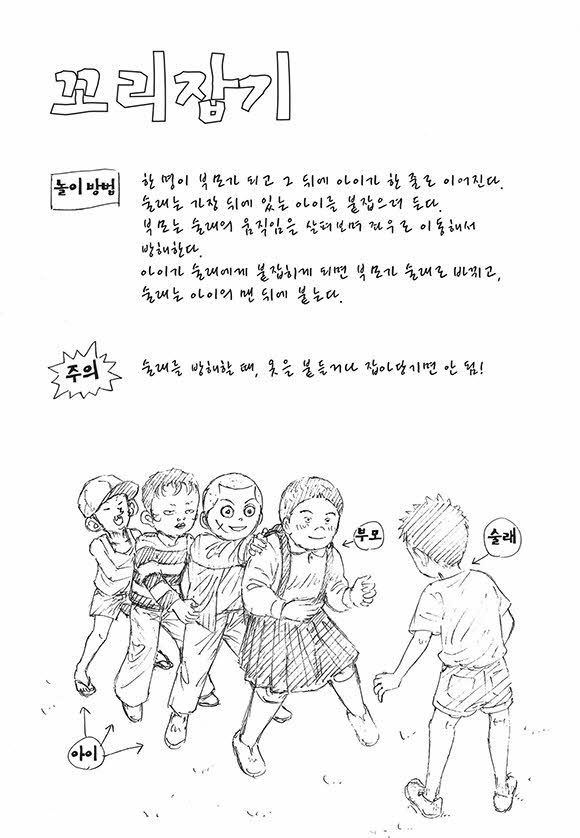 꼬리잡기
놀이 방법
한 명이 부모가 되고 그 뒤에 아이가 한 줄로 이어진다.
술래는 가장 뒤에 있는 아이를 붙잡으려 든다.
부모는 술래의 움직임을 살펴보며 좌우로 이동해서
방해한다.
아이가 술래에게 붙잡히게 되면 부모가 술래로 바뀌고,
술래는 아이의 맨 뒤에 붙는다.
주의
술래를 방해할 때, 옷을 붙들거나 잡아당기면 안 됨!
부모
술래
아이